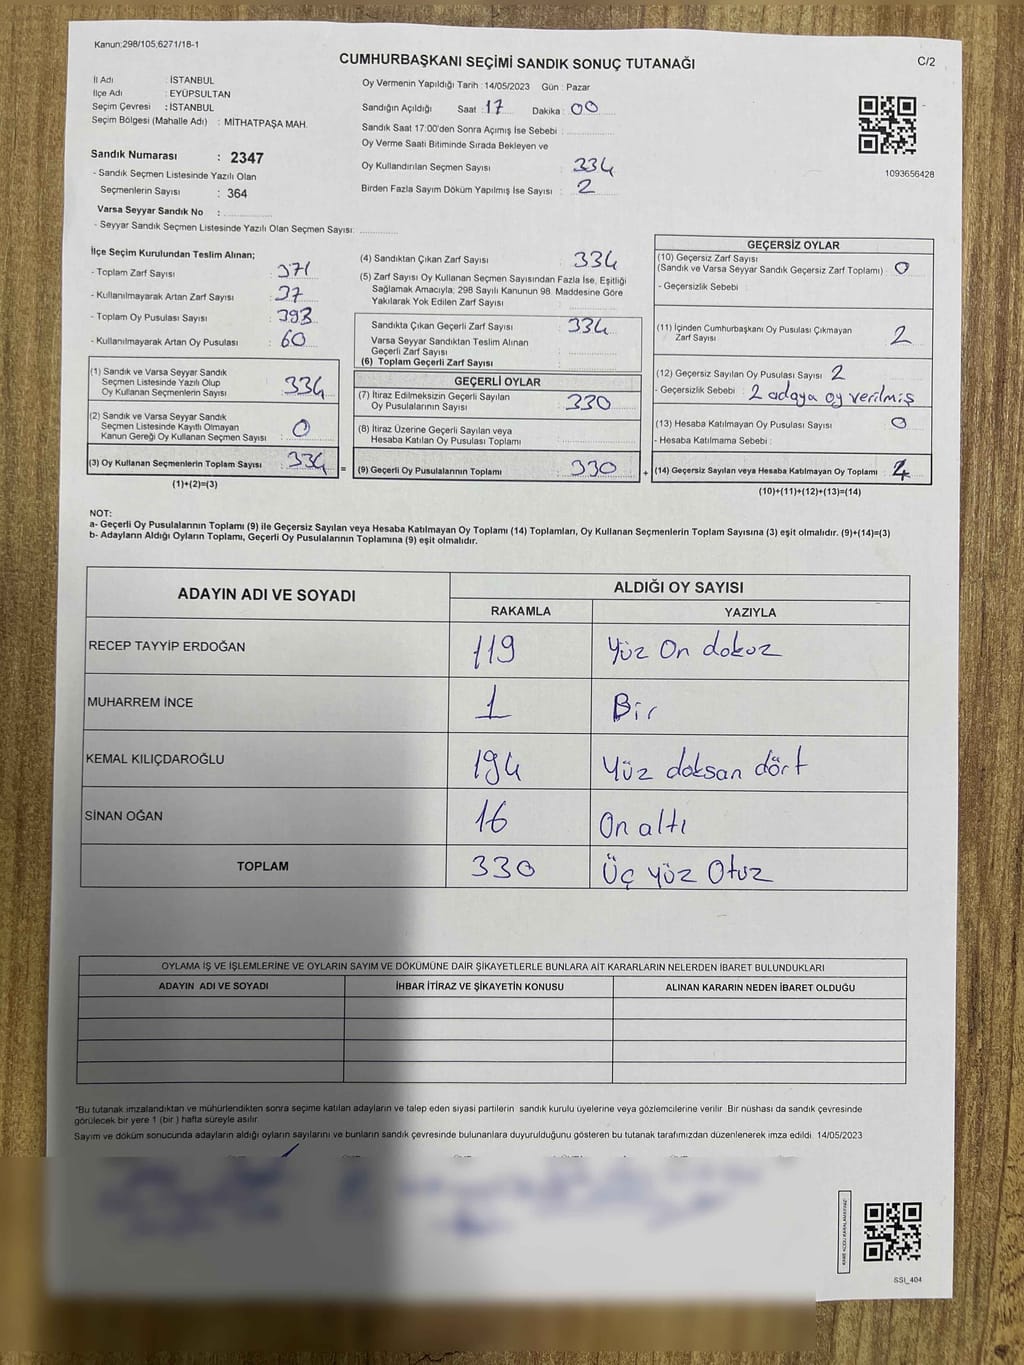 Kanun:298/105,6271/18-1
CUMHURBAŞKANI SEÇİMİ SANDIK SONUÇ TUTANAĞI
C/2
İl Adı : İSTANBUL
İlçe Adı : EYÜPSULTAN
Seçim Çevresi : İSTANBUL
Seçim Bölgesi (Mahalle Adı) : MİTHATPAŞA MAH.
Sandık Numarası : 2347
- Sandık Seçmen Listesinde Yazılı Olan
Seçmenlerin Sayısı : 364
Varsa Seyyar Sandık No :
- Seyyar Sandık Seçmen Listesinde Yazılı Olan Seçmen Sayısı:
Oy Vermenin Yapıldığı Tarih : 14/05/2023 Gün : Pazar
Sandığın Açıldığı Saat : 17 Dakika : 00
Sandık Saat 17:00'den Sonra Açımış İse Sebebi :
Oy Verme Saati Bitiminde Sırada Bekleyen ve
Oy Kullandırılan Seçmen Sayısı : 334
Birden Fazla Sayım Döküm Yapılmış İse Sayısı : 2
1093656428
İlçe Seçim Kurulundan Teslim Alınan;
- Toplam Zarf Sayısı : 371
- Kullanılmayarak Artan Zarf Sayısı : 37
- Toplam Oy Pusulası Sayısı : 393
- Kullanılmayarak Artan Oy Pusulası : 60
(1) Sandık ve Varsa Seyyar Sandık
Seçmen Listesinde Yazılı Olup
Oy Kullanan Seçmenlerin Sayısı : 334
(2) Sandık ve Varsa Seyyar Sandık
Seçmen Listesinde Kayıtlı Olmayan
Kanun Gereği Oy Kullanan Seçmen Sayısı : 0
(3) Oy Kullanan Seçmenlerin Toplam Sayısı : 334 =
(1)+(2)=(3)
(4) Sandıktan Çıkan Zarf Sayısı : 334
(5) Zarf Sayısı Oy Kullanan Seçmen Sayısından Fazla İse, Eşitliği
Sağlamak Amacıyla; 298 Sayılı Kanunun 98. Maddesine Göre
Yakılarak Yok Edilen Zarf Sayısı :
Sandıkta Çıkan Geçerli Zarf Sayısı : 334
Varsa Seyyar Sandıktan Teslim Alınan
Geçerli Zarf Sayısı :
(6) Toplam Geçerli Zarf Sayısı :
GEÇERLİ OYLAR
(7) İtiraz Edilmeksizin Geçerli Sayılan
Oy Pusulalarının Sayısı : 330
(8) İtiraz Üzerine Geçerli Sayılan veya
Hesaba Katılan Oy Pusulası Toplamı :
(9) Geçerli Oy Pusulalarının Toplamı : 330 +
GEÇERSİZ OYLAR
(10) Geçersiz Zarf Sayısı
(Sandık ve Varsa Seyyar Sandık Geçersiz Zarf Toplamı) : 0
- Geçersizlik Sebebi :
(11) İçinden Cumhurbaşkanı Oy Pusulası Çıkmayan
Zarf Sayısı : 2
(12) Geçersiz Sayılan Oy Pusulası Sayısı : 2
- Geçersizlik Sebebi : 2 adaya oy verilmiş
(13) Hesaba Katılmayan Oy Pusulası Sayısı : 0
- Hesaba Katılmama Sebebi :
(14) Geçersiz Sayılan veya Hesaba Katılmayan Oy Toplamı : 4
(10)+(11)+(12)+(13)=(14)
NOT:
a- Geçerli Oy Pusulalarının Toplamı (9) ile Geçersiz Sayılan veya Hesaba Katılmayan Oy Toplamı (14) Toplamları, Oy Kullanan Seçmenlerin Toplam Sayısına (3) eşit olmalıdır. (9)+(14)=(3)
b- Adayların Aldığı Oyların Toplamı, Geçerli Oy Pusulalarının Toplamına (9) eşit olmalıdır.
ADAYIN ADI VE SOYADI
ALDIĞI OY SAYISI
RAKAMLA YAZIYLA
RECEP TAYYİP ERDOĞAN 119 Yüz On dokuz
MUHARREM İNCE 1 Bir
KEMAL KILIÇDAROĞLU 194 Yüz doksan dört
SİNAN OĞAN 16 On altı
TOPLAM 330 Üç yüz Otuz
OYLAMA İŞ VE İŞLEMLERİNE VE OYLARIN SAYIM VE DÖKÜMÜNE DAİR ŞİKAYETLERLE BUNLARA AİT KARARLARIN NELERDEN İBARET BULUNDUKLARI
ADAYIN ADI VE SOYADI İHBAR İTİRAZ VE ŞİKAYETİN KONUSU ALINAN KARARIN NEDEN İBARET OLDUĞU
*Bu tutanak imzalandıktan ve mühürlendikten sonra seçime katılan adayların ve talep eden siyasi partilerin sandık kurulu üyelerine veya gözlemcilerine verilir. Bir nüshası da sandık çevresinde
görülecek bir yere 1 (bir ) hafta süreyle asılır.
Sayım ve döküm sonucunda adayların aldığı oyların sayılarını ve bunların sandık çevresinde bulunanlara duyurulduğunu gösteren bu tutanak tarafımızdan düzenlenerek imza edildi. 14/05/2023
SSI_404